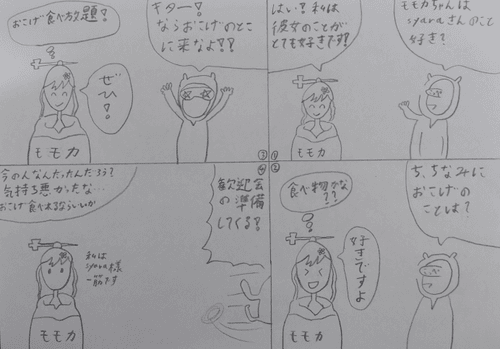 モモカちゃんは
syaraさんのこと
好き?
はい!私は
彼女のことが
とても好きです!
モモカ
ち、ちなみに
おこげの
ことは?
食べ物かな
??
好きですよ
モモカ
キター!
ならおこげのとこ
に来なよ!!
おこげ食べ放題?
ぜひ!
モモカ
歓迎会
の準備
してくる!
今のんなんだったんだろう?
気持ち悪かったな…
おこげ食べれるならいいか
私は
syara様
一筋です
モモカ